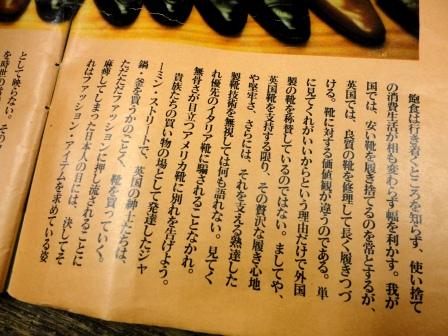 飽食は行き着くところを知らず、使い捨て
の消費生活が相も変わらず幅を利かす。我が
国では、安い靴を履き捨てるのを常とするが、
英国では、良質の靴を修理して長く履きつづ
ける。靴に対する価値観が違うのである。単
に見てくれがいいからという理由だけで外国
製の靴を称賛しているのではない。ましてや、
英国靴を支持する限り、その贅沢な履き心地
や堅牢さ、さらには、それを支える熟達した
製靴技術を無視しては何も語れない。見てく
れ優先のイタリア靴に騙されることなかれ。
無骨さが目立つアメリカ靴に別れを告げよう。
貴族たちの買い物の場として発達したジャ
ーミン・ストリートで、英国の紳士たちは、
鍋・釜を買うかのごとく、靴を買っていく。
ただただファッションに押し流されることに
麻痺してしまった日本人の目には、決してそ
れはファッション・アイテムを求めている姿
として映らない。
を時世の